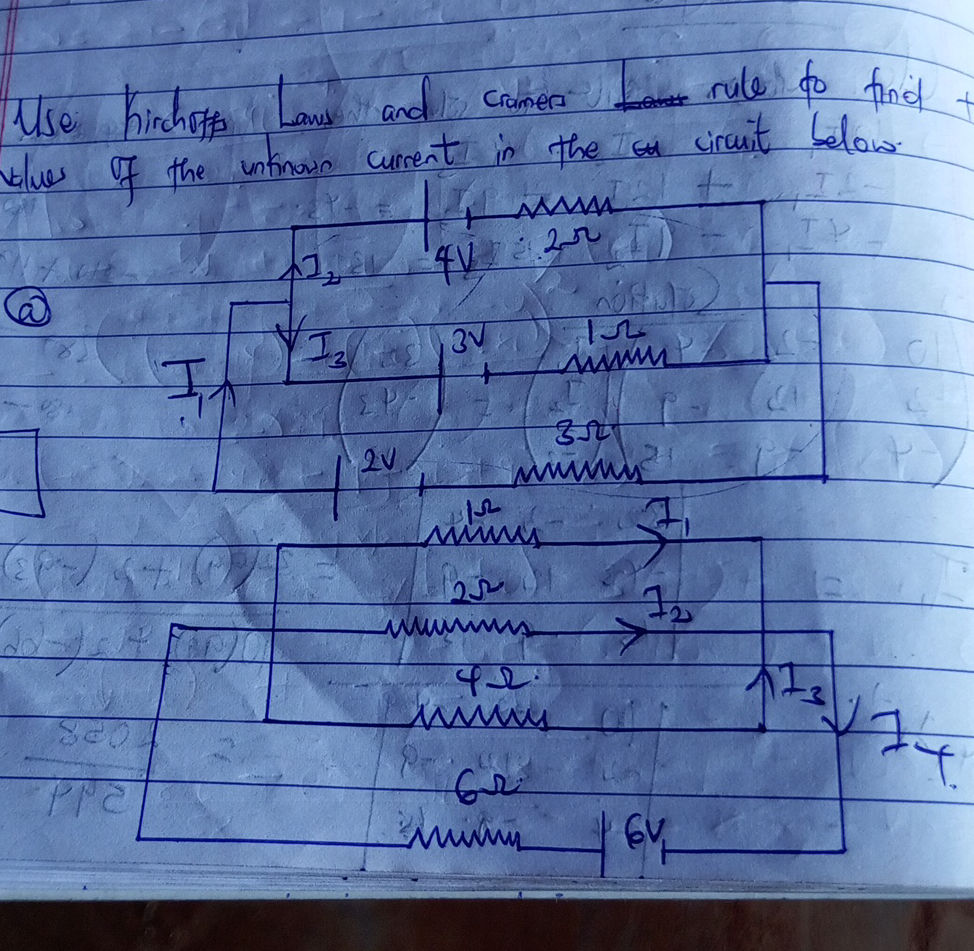 Use Kirchoffs Laws and cramers Laws rule to find
values of the unknown current in the circuit below.
2Ω
4V
I₂
(a)
I₃
3V
1Ω
I₁
3Ω
2V
1Ω
I₁
2Ω
I₂
4Ω
I₃
I₄
6Ω
6V